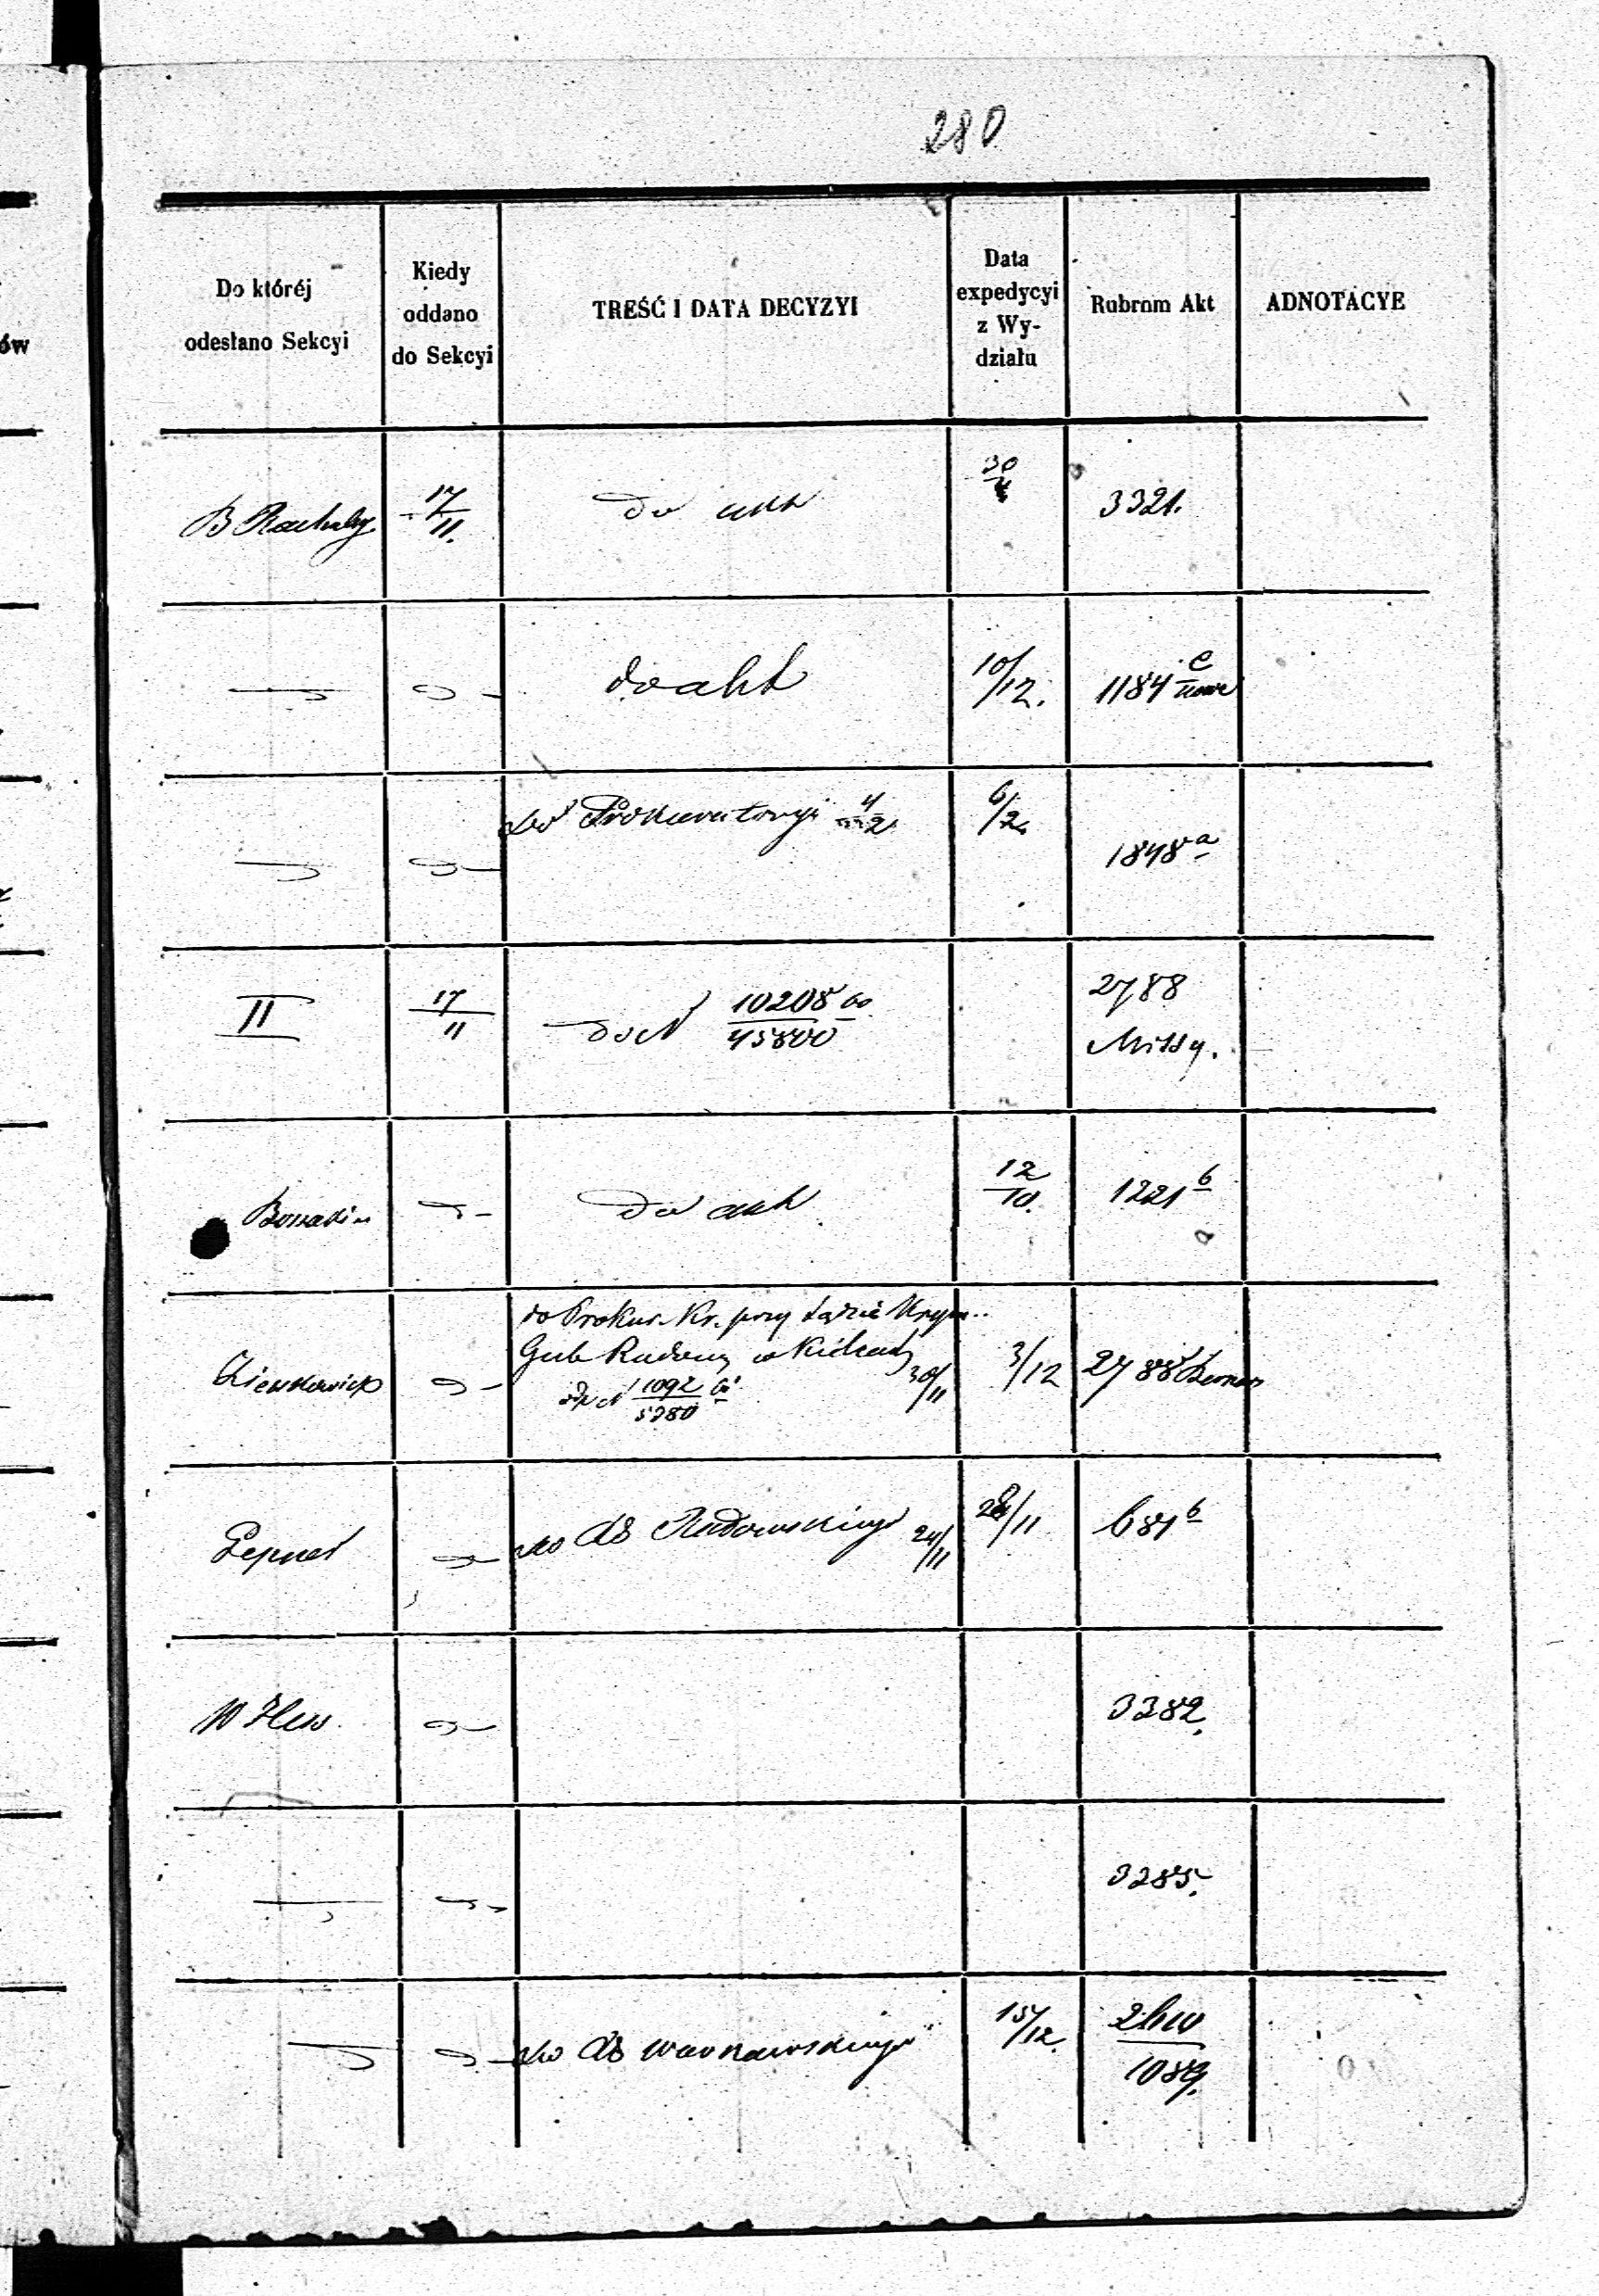 280
Do któréj
odesłano Sekcyi
Kiedy
oddano
do Sekcyi
TREŚĆ I DATA DECYZYI
Data
expedycyi
z Wy-
działu
Rubrum Akt
ADNOTACYE
ów
B 17/11 do akt 30/4 3321.
do akt 10/12. 1184 c
do Prokuratoryi 4/2 6/2. 1848 a
II 17/11 do N 10208/45800 60 2788
do akt 12/10. 1221 b
do Prokur. Kr. przy Sądzie Krym.
Gub Radoms w Kielcach 30/11 3/12 2788
N 1092/5280 60
Lepner do RG Radomskiego 24/11 28/11 681 b
3282.
3285.
do RG Warszawskiego 15/12. 1089.